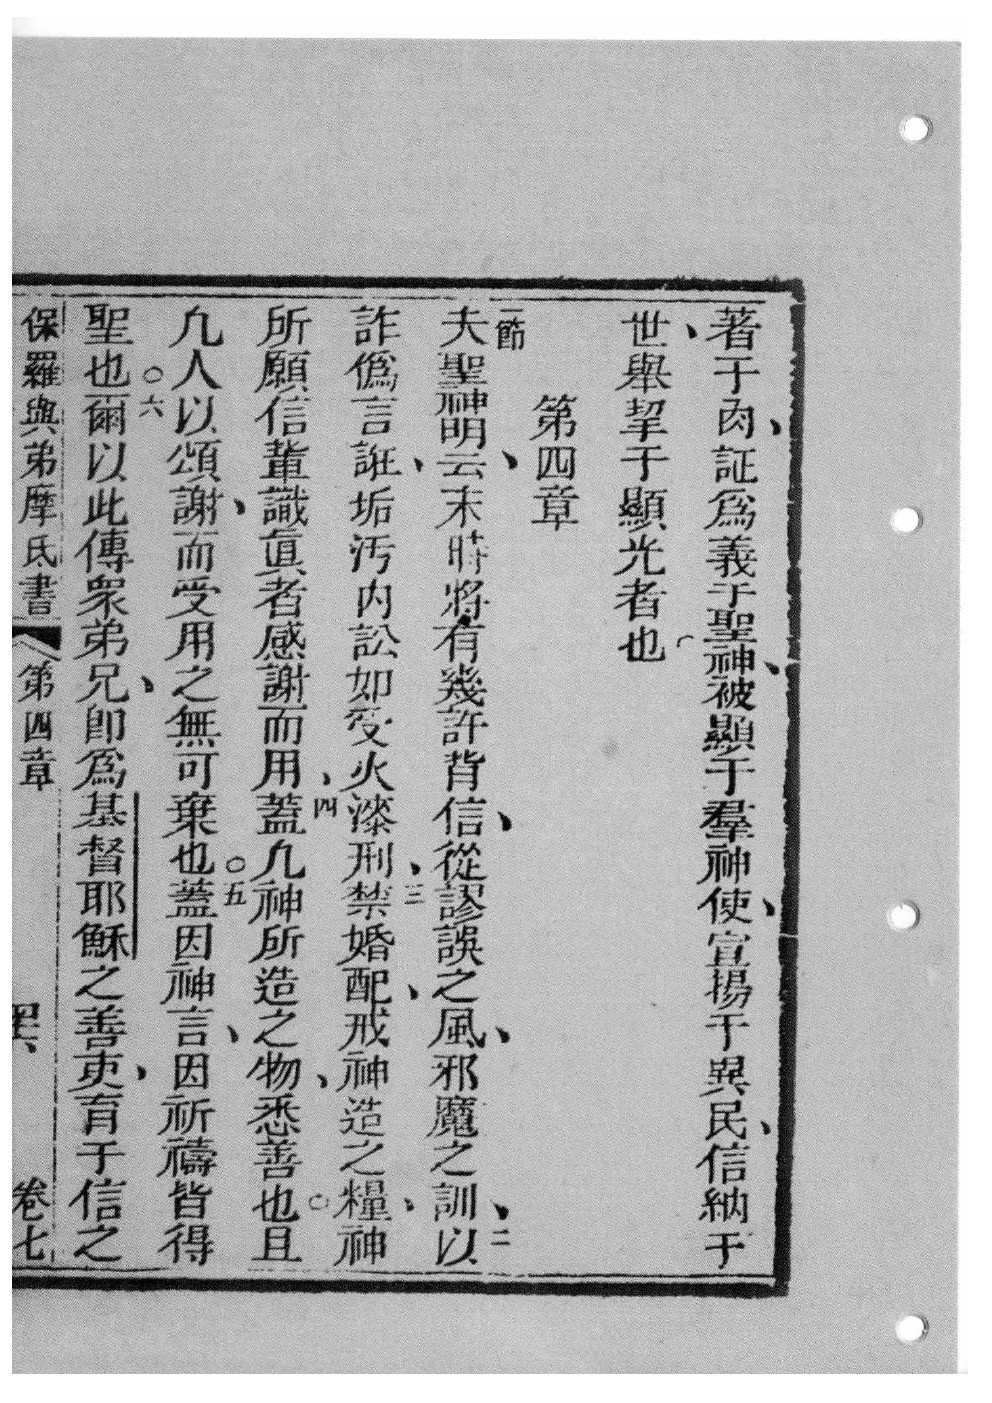 著于肉、証爲義于聖神、被顯于羣神使、宣揚于異民、信納于
世、舉挈于顯光者也
第四章
一節夫聖神明云、末時將有幾許背信、從謬誤之風、邪魔之訓、二以
詐僞言誑、垢汚内訟如受火漆、三刑禁婚配、戒神造之糧、神
所願信輩識眞者感謝而用、四蓋凢神所造之物、悉善也○且
凢人以頌謝、而受用之無可棄也○五蓋因神言、因祈禱皆得
聖也○六爾以此傳衆弟兄、卽爲基督耶穌之善吏、育于信之
保羅與弟摩氐書 第四章 卷七